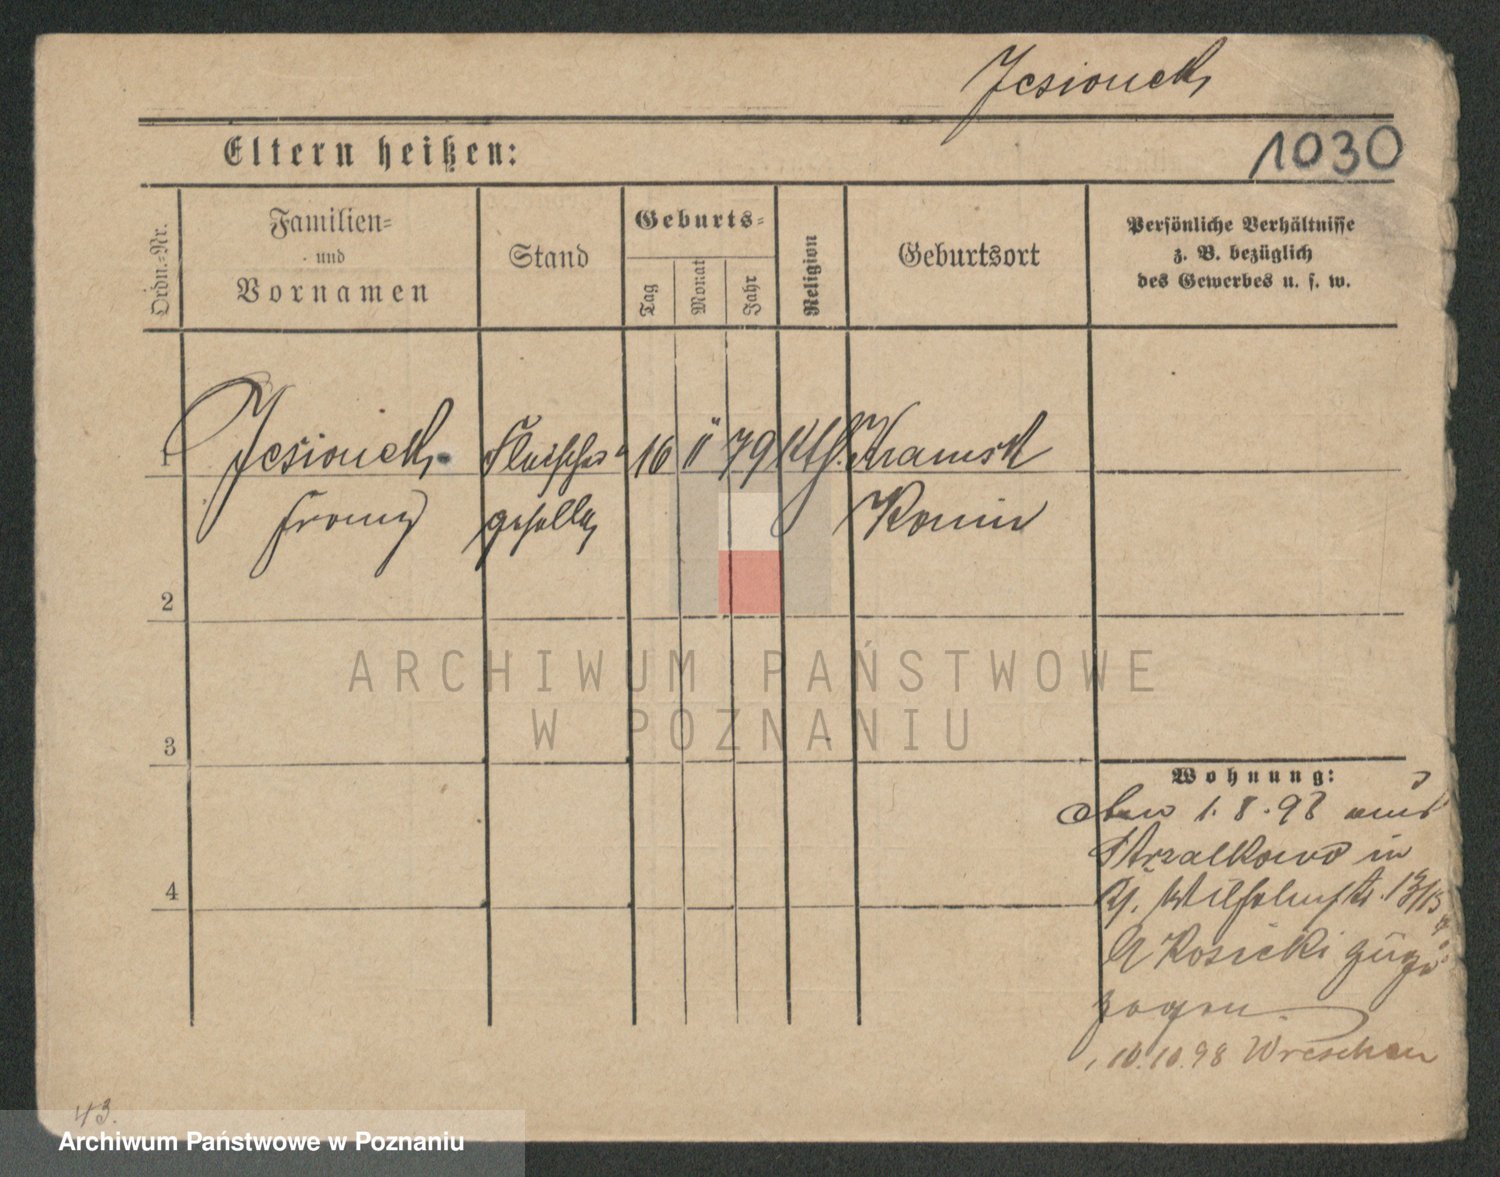 Jesionek
Eltern heißen:
1030
Ordn.-Nr.
Familien-
und
Vornamen
Stand
Geburts-
Tag
Monat
Jahr
Religion
Geburtsort
Persönliche Verhältnisse
z. B. bezüglich
des Gewerbes u. s. w.
1
Jesionek
Franz
Fleischer-
geselle
16
11
79
kth.
Kramsk
Konin
2
3
4
ARCHIWUM PAŃSTWOWE
W POZNANIU
Wohnung:
1.8.98 aus
Strzalkowo in
Wilhelmstr. 13/15
Kosicki zuge-
zogen.
10.10.98 Wreschen
43.
Archiwum Państwowe w Poznaniu